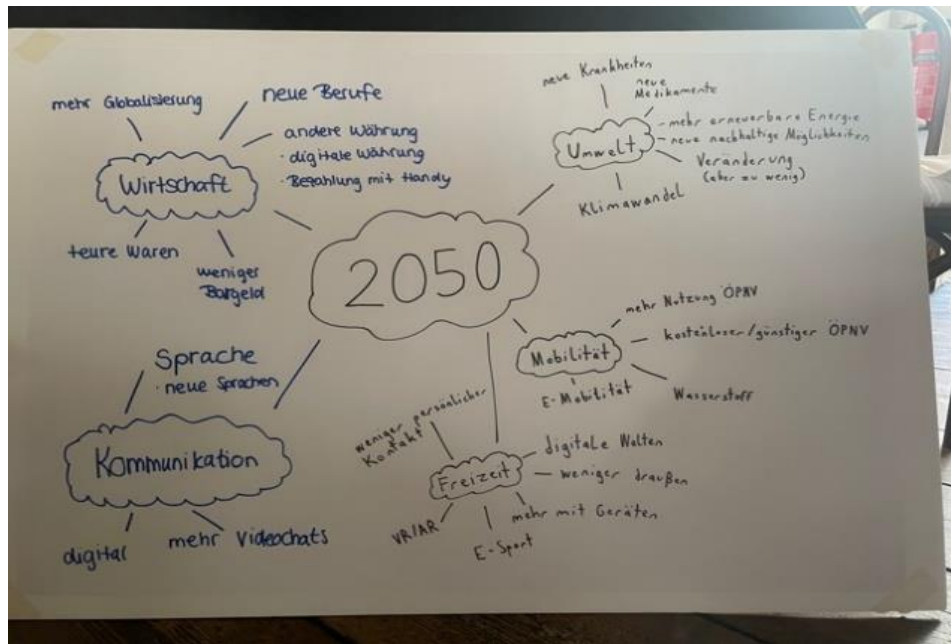 2050
Wirtschaft
mehr Globalisierung
neue Berufe
andere Währung
· digitale Währung
· Bezahlung mit Handy
teure Waren
weniger
Bargeld
Umwelt
neue Krankheiten
neue
Medikamente
mehr erneuerbare Energie
neue nachhaltige Möglichkeiten
Veränderung
(aber zu wenig)
Klimawandel
Mobilität
mehr Nutzung ÖPNV
kostenloser/günstiger ÖPNV
Wasserstoff
E-Mobilität
Kommunikation
Sprache
· neue Sprachen
digital
mehr Videochats
Freizeit
weniger persönlicher
Kontakt
digitale Welten
weniger draußen
mehr mit Geräten
E-Sport
VR/AR